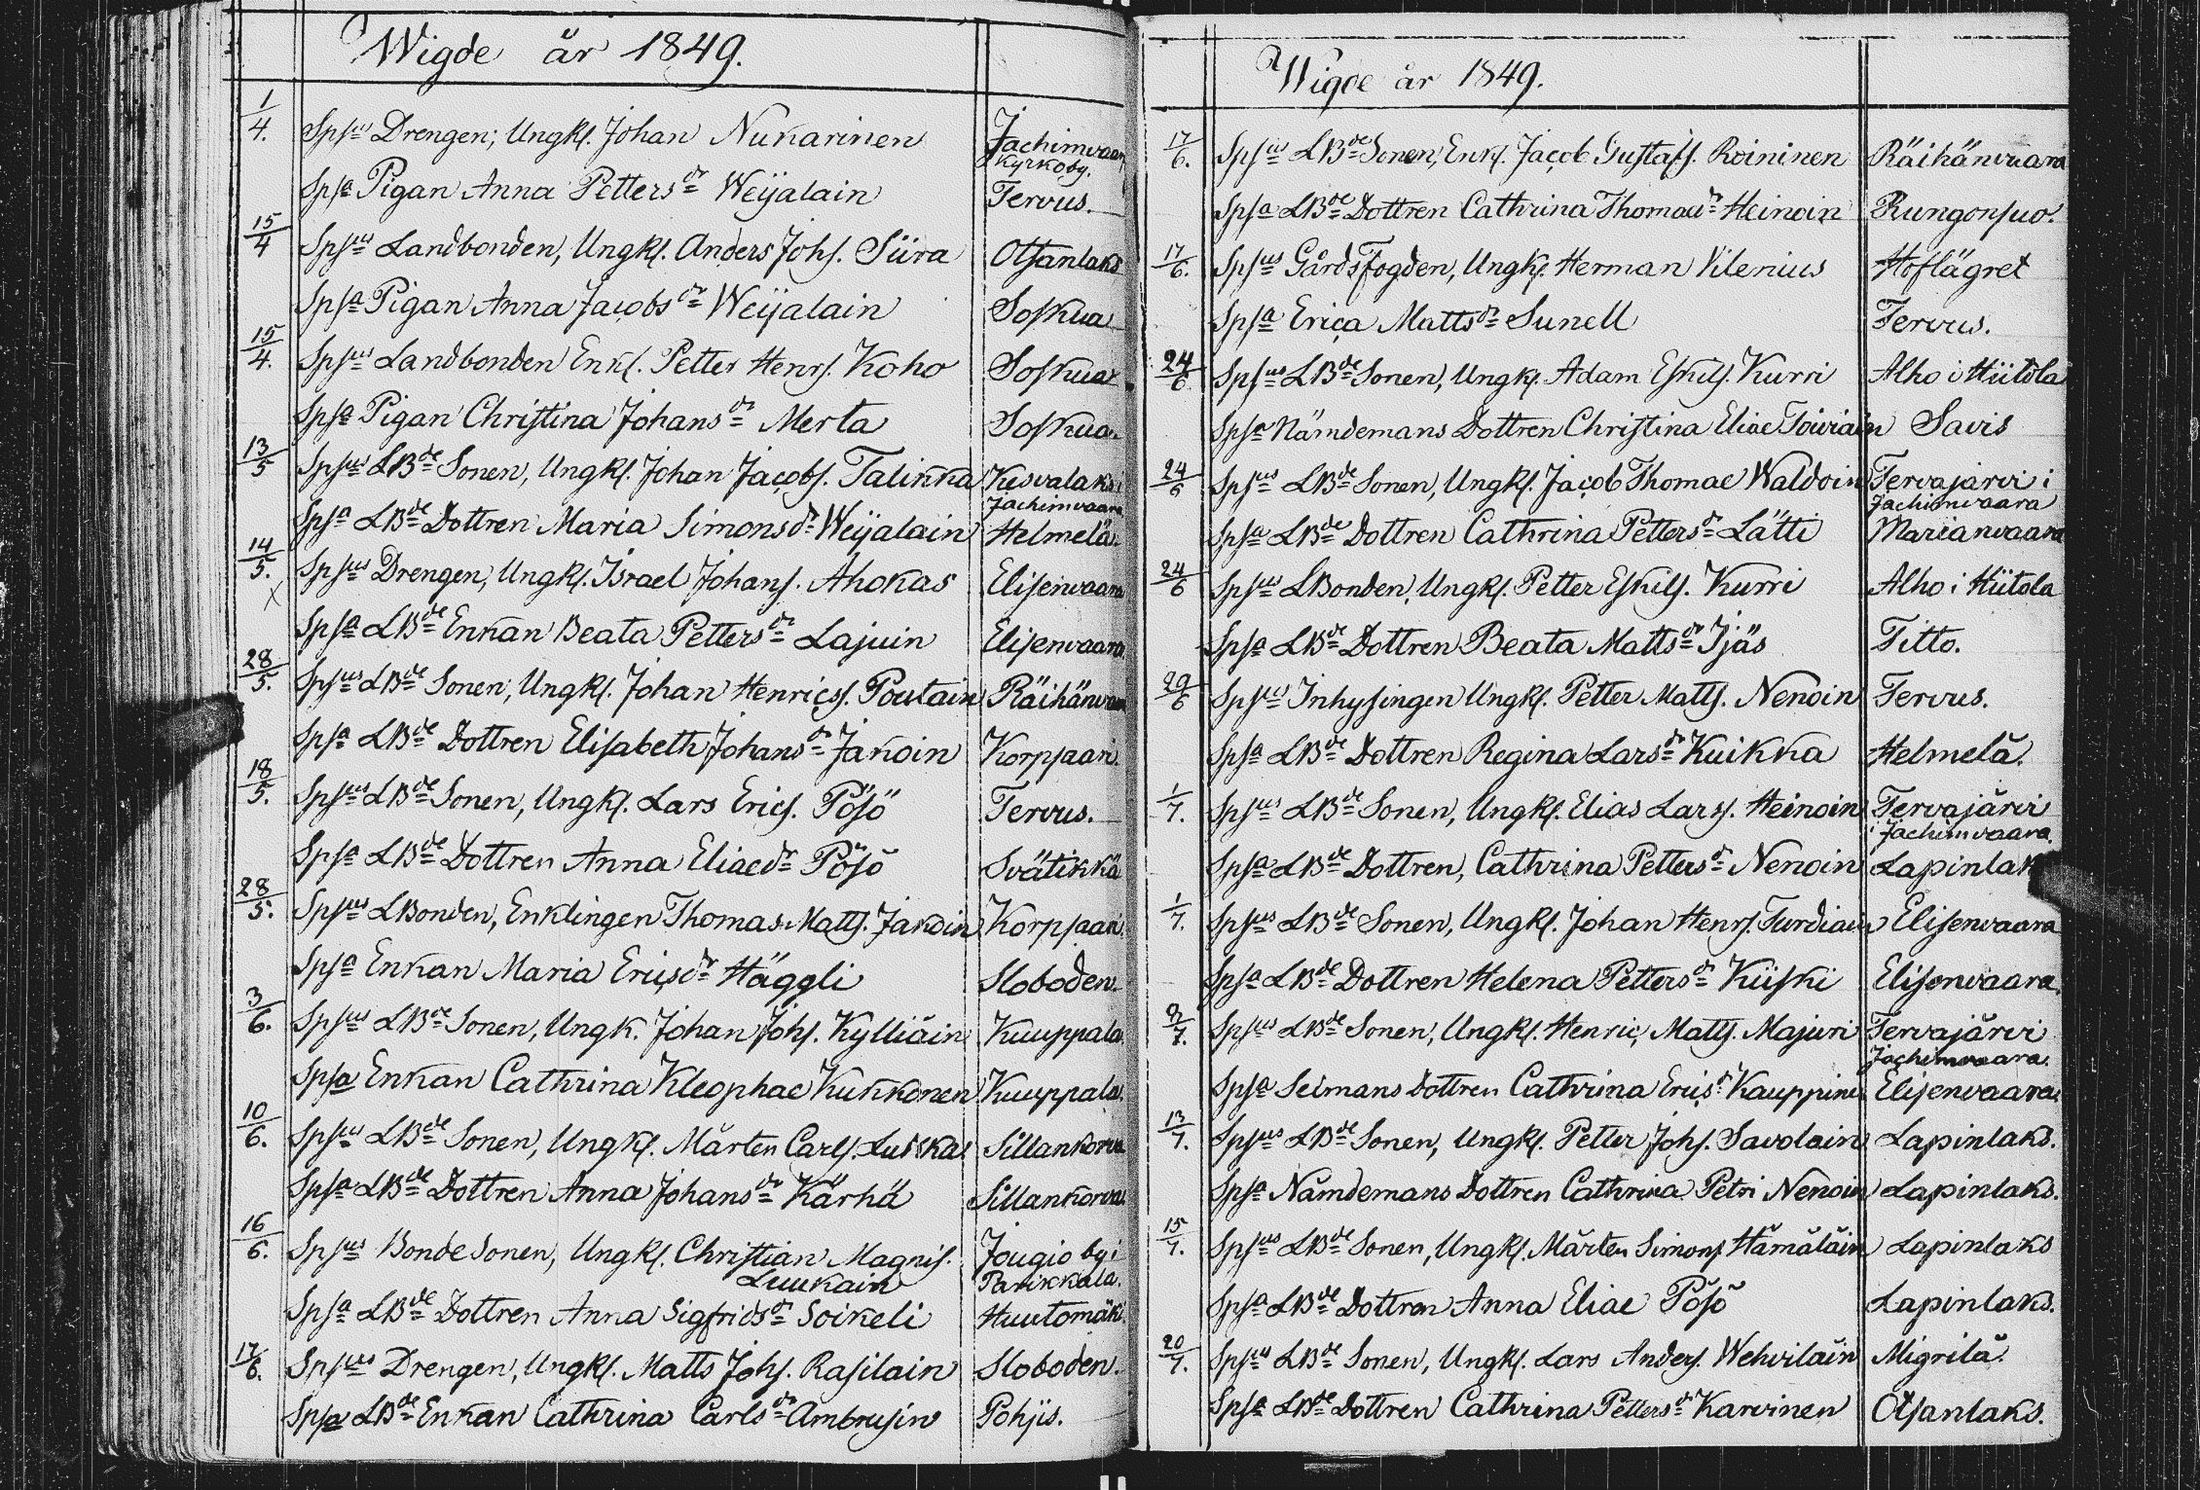 Wigde år 1849.
1/4. Spsus Drengen, Ungkl. Johan Nukarinen Jachimvaara
Kyrkoby.
Spsa Pigan Anna Pettersdr Weijalain Tervus.
15/4 Spsus Landbonden, Ungkl. Anders Johs. Siira Otsanlaks
Spsa Pigan Anna Jacobsdr Weijalain Soskua
15/4. Spsus Landbonden Enkl. Petter Henrs. Koho Soskua
Spsa Pigan Christina Johansdr Merta Soskua.
13/5 Spsus LBde Sonen, Ungkl. Johan Jacobs. Talikka Kesvalaks i
Jachimvaara
Spsa LBde Dottren Maria Simonsdr Weijalain Helmelä.
14/5. Spsus Drengen, Ungkl. Israel Johans. Ahokas Elisenvaara
x
Spsa LBde Enkan Beata Pettersdr Lajuin Elisenvaara
28/5. Spsus LBde Sonen, Ungkl. Johan Henrics. Poutain Räihänvaara
Spsa LBde Dottren Elisabeth Johansdr Jakoin Korpsaari.
18/5. Spsus LBde Sonen, Ungkl. Lars Erics. Pösö Tervus.
Spsa LBde Dottren Anna Eliaedr Pösö Svätikkä
28/5. Spsus LBonden, Enklingen Thomas Matts. Jakoin Korpsaari.
Spsa Enkan Maria Ericsdr Häggli Sloboden.
3/6. Spsus LBde Sonen, Ungk. Johan Johs. Kylliäin Kuuppala.
Spsa Enkan Cathrina Kleophae Kukkonen Kuuppala.
10/6. Spsus LBde Sonen, Ungkl. Mårten Carls. Luikka Sillankorva
Spsa LBde Dottren Anna Johansdr Kärhä Sillankorva.
16/6. Spsus Bonde Sonen, Ungkl. Christian Magnis. Jougio by i
Luukain Parikkala.
Spsa LBde Dottren Anna Sigfridsdr Soikeli Huutomäki.
17/6. Spsus Drengen, Ungkl. Matts Johs. Rasilain Sloboden.
Spsa LBde Enkan Cathrina Carlsdr Ambrusin Pohjis.
Wigde år 1849.
17/6. Spsus LBde Sonen, Enkl. Jacob Gustafs. Roininen Räihänvaara
Spsa LBde Dottren Cathrina Thomaedr Heinoin Rungonsuo.
17/6. Spsus GårdsFogden, Ungkl. Herman Vilenius Hoflägret
Spsa Erica Mattsdr Sunell Tervus.
24/6 Spsus LBde Sonen, Ungkl. Adam Eskils. Kurri Alho i Hiitola
Spsa Nämdemans Dottren Christina Eliae Toiviain Savis
24/6 Spsus LBde Sonen, Ungkl. Jacob Thomae Waldoin Tervajärvi i
Jachimvaara
Spsa LBde Dottren Cathrina Pettersdr Lätti Marianvaara
24/6 Spsus LBonden, Ungkl. Petter Eskils. Kurri Alho i Hiitola
Spsa LBde Dottren Beata Mattsdr Ijäs Titto.
29/6 Spsus Inhysingen Ungkl. Petter Matts. Nenoin Tervus.
Spsa LBde Dottren Regina Larsdr Kuikka Helmelä.
1/7. Spsus LBde Sonen, Ungkl. Elias Lars. Heinoin Tervajärvi
i Jachimvaara.
Spsa LBde Dottren, Cathrina Pettersdr Nenoin Lapinlaks
1/7. Spsus LBde Sonen, Ungkl. Johan Henrs. Turdiain Elisenvaara
Spsa LBde Dottren Helena Pettersdr Kiiski Elisenvaara.
8/7. Spsus LBde Sonen, Ungkl. Henric Matts. Majuri Tervajärvi
Jachimvaara.
Spsa Seimans Dottren Cathrina Ericsdr Kauppinen Elisenvaara
13/7. Spsus LBde Sonen, Ungkl. Petter Johs. Savolain Lapinlaks.
Spsa Nämdemans Dottren Cathrina Petri Nenoin Lapinlaks.
15/7. Spsus LBde Sonen, Ungkl. Mårten Simons Hämäläin Lapinlaks
Spsa LBde Dottren Anna Eliae Pösö Lapinlaks.
20/7. Spsus LBde Sonen, Ungkl. Lars Anders. Wehviläin Migrilä.
Spsa LBde Dottren Cathrina Pettersdr Karvinen Otsanlaks.